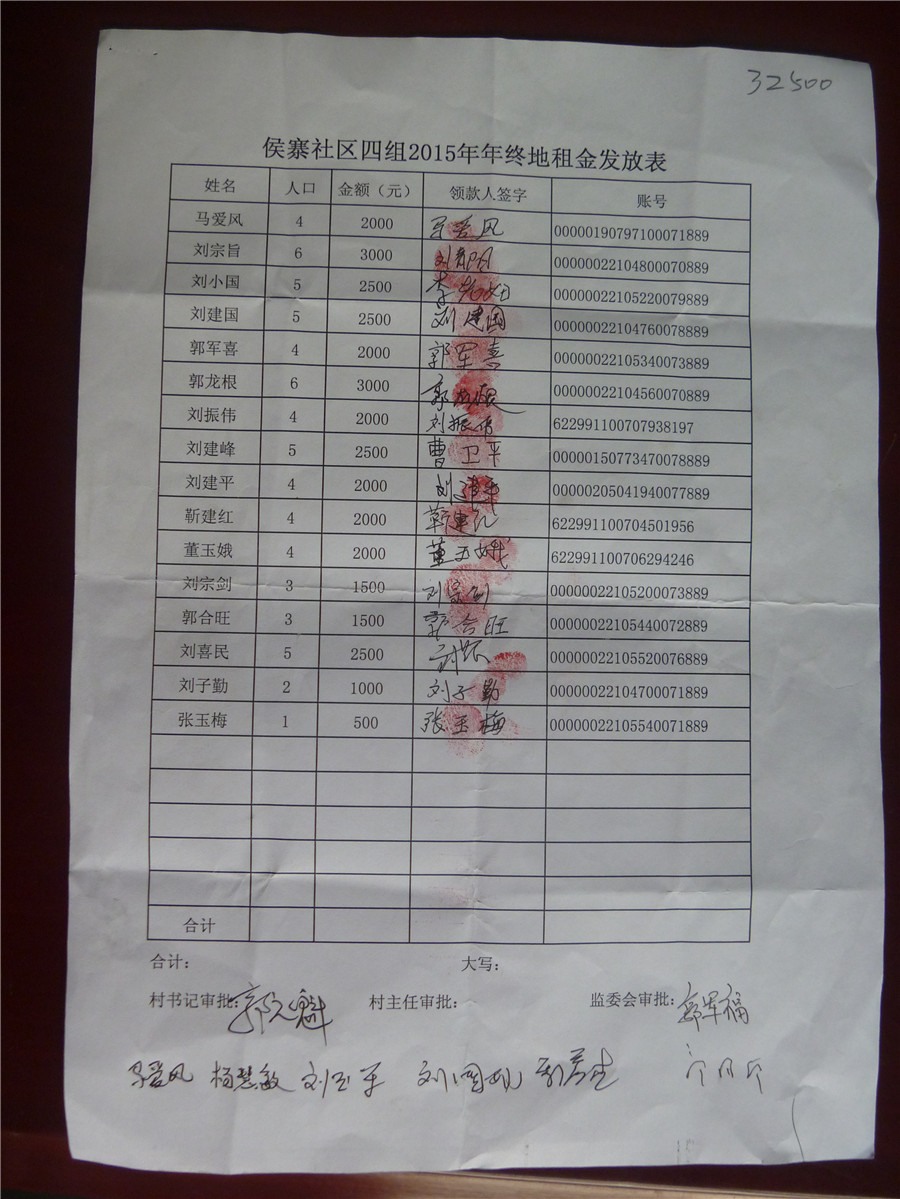 32500
侯寨社区四组2015年年终地租金发放表
姓名 人口 金额（元） 领款人签字 账号
马爱风 4 2000 马爱风 00000190797100071889
刘宗旨 6 3000 00000022104800070889
刘小国 5 2500 00000022105220079889
刘建国 5 2500 刘建国 00000022104760078889
郭军喜 4 2000 郭军喜 00000022105340073889
郭龙根 6 3000 郭龙根 00000022104560070889
刘振伟 4 2000 刘振伟 622991100707938197
刘建峰 5 2500 曹卫平 00000150773470078889
刘建平 4 2000 刘建平 00000205041940077889
靳建红 4 2000 靳建红 622991100704501956
董玉娥 4 2000 董玉娥 622991100706294246
刘宗剑 3 1500 刘宗剑 00000022105200073889
郭合旺 3 1500 郭合旺 00000022105440072889
刘喜民 5 2500 00000022105520076889
刘子勤 2 1000 刘子勤 00000022104700071889
张玉梅 1 500 张玉梅 00000022105540071889
合计
合计： 大写：
村书记审批： 村主任审批： 监委会审批：郭军福
马爱风 杨慧敏 刘玉平